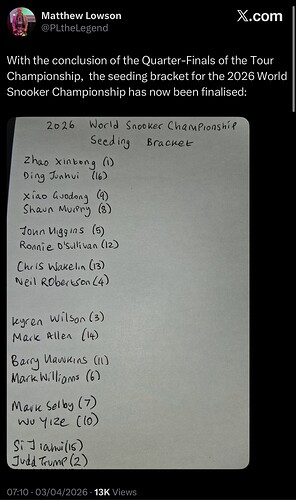 Matthew Lowson
@PLtheLegend
X.com
With the conclusion of the Quarter-Finals of the Tour
Championship, the seeding bracket for the 2026 World
Snooker Championship has now been finalised:
2026 World Snooker Championship
Seeding Bracket
Zhao Xintong (1)
Ding Junhui (16)
Xiao Guodong (9)
Shaun Murphy (8)
John Higgins (5)
Ronnie O'Sullivan (12)
Chris Wakelin (13)
Neil Robertson (4)
Kyren Wilson (3)
Mark Allen (14)
Barry Hawkins (11)
Mark Williams (6)
Mark Selby (7)
Wu Yize (10)
Si Jiahui (15)
Judd Trump (2)
07:10 · 03/04/2026 · 13K Views